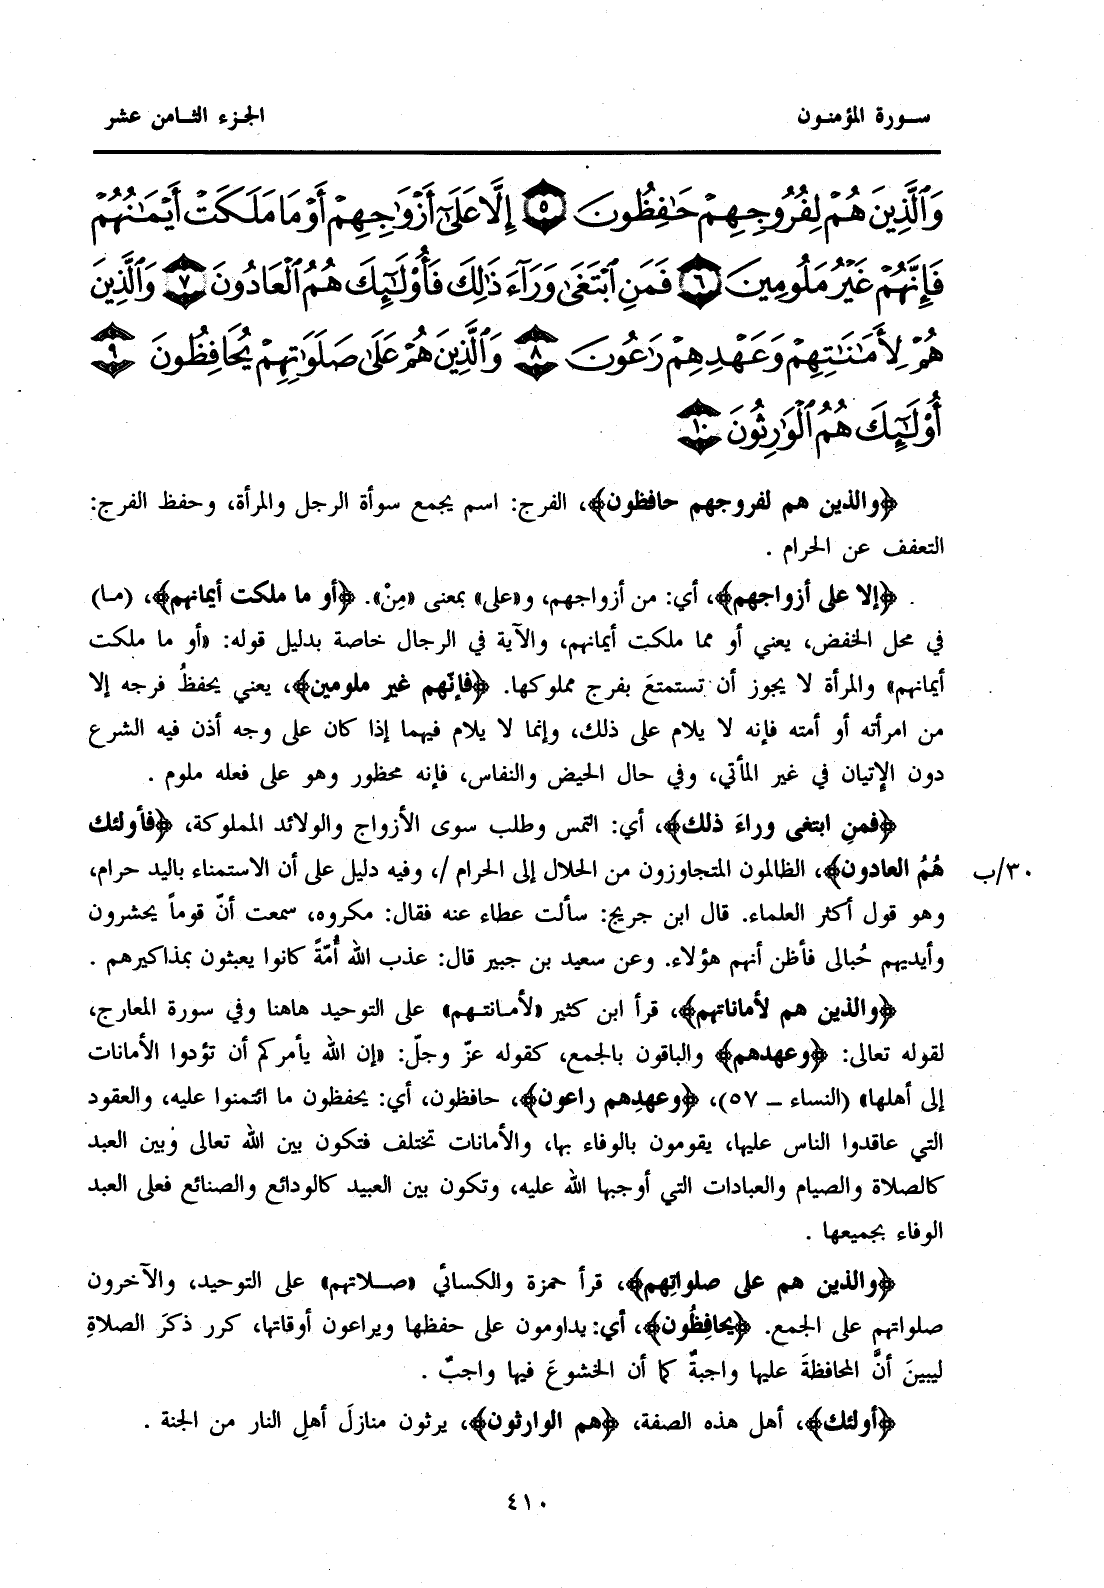 سورة المؤمنون
الجزء الثامن عشر
وَٱلَّذِينَ هُمْ لِفُرُوجِهِمْ حَٰفِظُونَ ٥ إِلَّا عَلَىٰٓ أَزْوَٰجِهِمْ أَوْ مَا مَلَكَتْ أَيْمَٰنُهُمْ
فَإِنَّهُمْ غَيْرُ مَلُومِينَ ٦ فَمَنِ ٱبْتَغَىٰ وَرَآءَ ذَٰلِكَ فَأُوْلَٰٓئِكَ هُمُ ٱلْعَادُونَ ٧ وَٱلَّذِينَ
هُمْ لِأَمَٰنَٰتِهِمْ وَعَهْدِهِمْ رَٰعُونَ ٨ وَٱلَّذِينَ هُمْ عَلَىٰ صَلَوَٰتِهِمْ يُحَافِظُونَ ٩
أُوْلَٰٓئِكَ هُمُ ٱلْوَٰرِثُونَ ١٠
﴿والذين هم لفروجهم حافظون﴾، الفرج: اسم يجمع سوأة الرجل والمرأة، وحفظ الفرج:
التعفف عن الحرام .
﴿إلا على أزواجهم﴾، أي: من أزواجهم، و«على» بمعنى «مِنْ». ﴿أو ما ملكت أيمانهم﴾، (ما)
في محل الخفض، يعني أو مما ملكت أيمانهم، والآية في الرجال خاصة بدليل قوله: «أو ما ملكت
أيمانهم» والمرأة لا يجوز أن تستمتعَ بفرج مملوكها. ﴿فإنّهم غير ملومين﴾، يعني يحفظُ فرجه إلا
من امرأته أو أمته فإنه لا يلام على ذلك، وإنما لا يلام فيهما إذا كان على وجه أذن فيه الشرع
دون الإتيان في غير المأتي، وفي حال الحيض والنفاس، فإنه محظور وهو على فعله ملوم .
﴿فمنِ ابتغى وراءَ ذلك﴾، أي: التمس وطلب سوى الأزواج والولائد المملوكة، ﴿فأولئك
هُمُ العادون﴾، الظالمون المتجاوزون من الحلال إلى الحرام /، وفيه دليل على أن الاستمناء باليد حرام،
٣٠/ب
وهو قول أكثر العلماء. قال ابن جريج: سألت عطاء عنه فقال: مكروه، سمعت أنّ قوماً يحشرون
وأيديهم حُبالى فأظن أنهم هؤلاء. وعن سعيد بن جبير قال: عذب الله أُمّةً كانوا يعبثون بمذاكيرهم .
﴿والذين هم لأماناتهم﴾، قرأ ابن كثير «لأمانتهم» على التوحيد هاهنا وفي سورة المعارج،
لقوله تعالى: ﴿وعهدهم﴾ والباقون بالجمع، كقوله عزّ وجلّ: «إن الله يأمركم أن تؤدوا الأمانات
إلى أهلها» (النساء ــ ٥٧)، ﴿وعهدِهم راعون﴾، حافظون، أي: يحفظون ما ائتمنوا عليه، والعقود
التي عاقدوا الناس عليها، يقومون بالوفاء بها، والأمانات تختلف فتكون بين الله تعالى وبين العبد
كالصلاة والصيام والعبادات التي أوجبها الله عليه، وتكون بين العبيد كالودائع والصنائع فعلى العبد
الوفاء بجميعها .
﴿والذين هم على صلواتِهم﴾، قرأ حمزة والكسائي «صلاتهم» على التوحيد، والآخرون
صلواتهم على الجمع. ﴿يحافِظُون﴾، أي: يداومون على حفظها ويراعون أوقاتها، كرر ذكرَ الصلاةِ
ليبينَ أنَّ المحافظةَ عليها واجبةٌ كما أن الخشوعَ فيها واجبٌ .
﴿أولئك﴾، أهل هذه الصفة، ﴿هم الوارثون﴾، يرثون منازلَ أهلِ النار من الجنة .
٤١٠